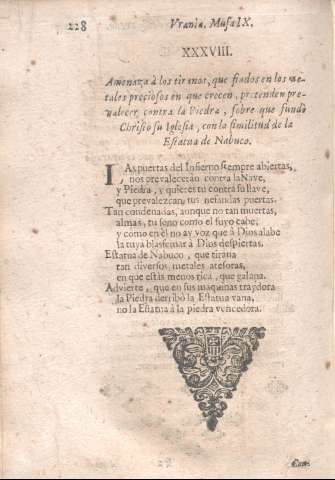 228 Vrania. Musa IX.
XXXVIII.
Amenaza à los tiranos, que fiados en los me-
tales preciosos en que crecen, pretenden pre-
valecer contra la Piedra, sobre que fundò
Christo su Iglesia, con la similitud de la
Estatua de Nabuco.
LAs puertas del Infierno siempre abiertas,
nos prevalecerán contra la Nave,
y Piedra, y quieres tu contra su llave,
que prevalezcan, tus nefandas puertas.
Tan condenadas, aunque no tan muertas,
almas, tu seno como el suyo cabe;
y como en el no ay voz que à Dios alabe
la tuya blasfemar à Dios despiertas.
Estatua de Nabuco, que tirana
tan diversos metales atesoras,
en que estàs menos rica, que galana.
Advierte, que en sus maquinas traydora
la Piedra derribò la Estatua vana,
no la Estatua à la piedra vencedora.